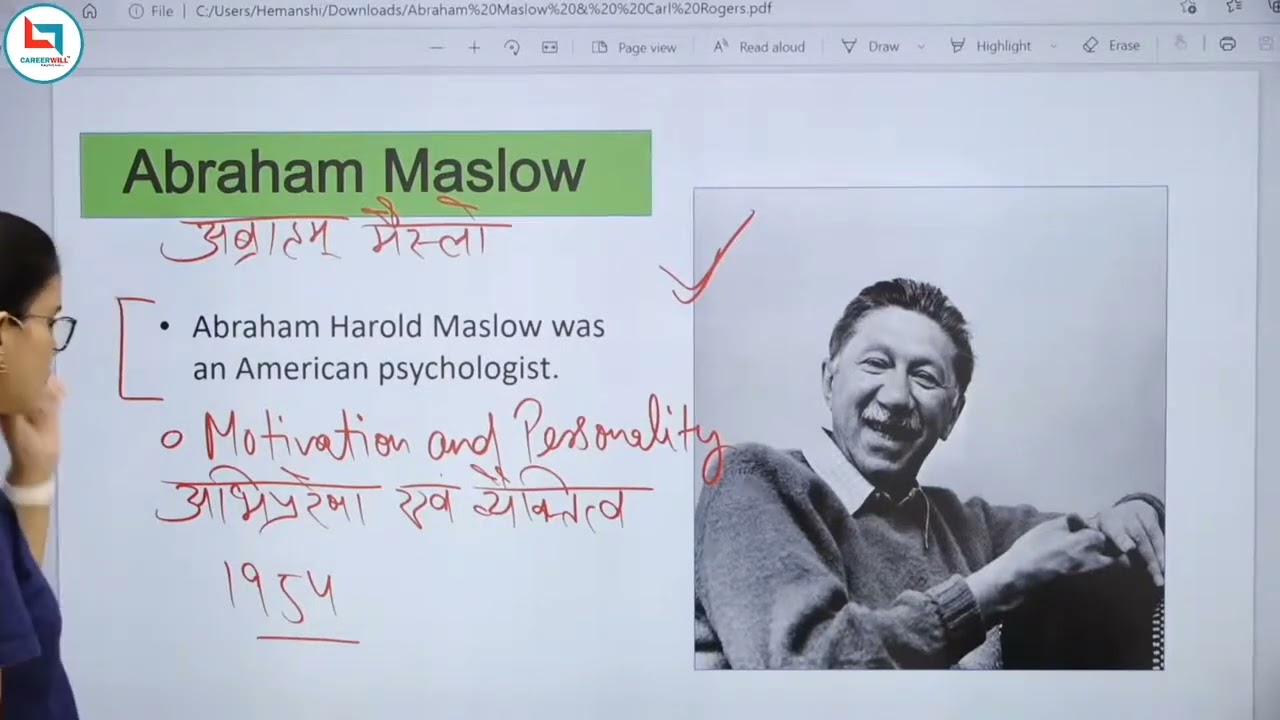 File | C:/Users/Hemanshi/Downloads/Abraham%20Maslow%20&%20%20Carl%20Rogers.pdf
Page view Read aloud Draw Highlight Erase
CAREERWILL
Abraham Maslow
अब्राहम् मैस्लो
• Abraham Harold Maslow was
an American psychologist.
Motivation and Personality
अभिप्रेरणा एवं व्यैक्तित्व
1954